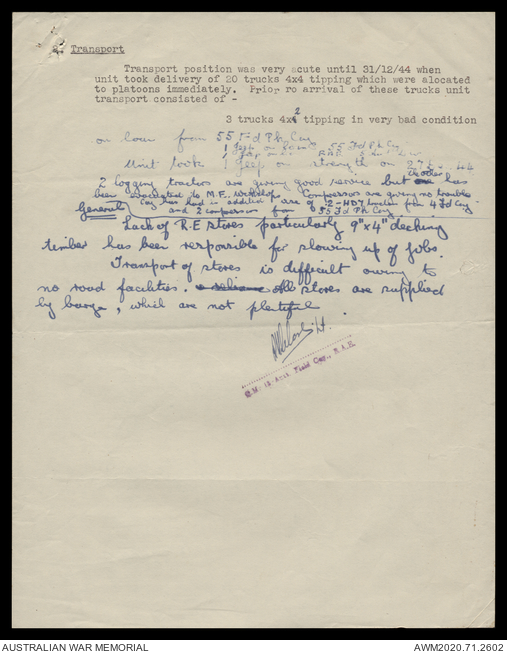 2. Transport
Transport position was very acute until 31/12/44 when
unit took delivery of 20 trucks 4x4 tipping which were alocated
to platoons immediately. Prior ro arrival of these trucks unit
transport consisted of -
3 trucks 4x2 tipping in very bad condition
on loan from 55 Fd Pk Coy
1 Jeep on loan 55 Fd Pk Coy
1 Jeep on
Unit took 1 Jeep on strength on 27 44
2 logging tractors are giving good service but one other has
been evacuated to M.E. workshop Compressors are giving no trouble
Coy has had in addition use of 2-HD7 tractors from 4 Fd Coy
General and 2 compressors from 55 Fd Pk Coy
Lack of R.E stores particularly 9"x4" decking
timber has been responsible for slowing up of jobs.
Transport of stores is difficult owing to
no road facilities. All stores are supplied
by barge, which are not plentiful
Lt.
Aust. Field Coy., R.A.E.
AUSTRALIAN WAR MEMORIAL
AWM2020.71.2602